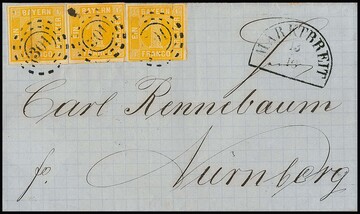 BAYERN BAYERN
FRANCO
MARKTBREIT
Carl Rennebaum
fr. Nürnberg